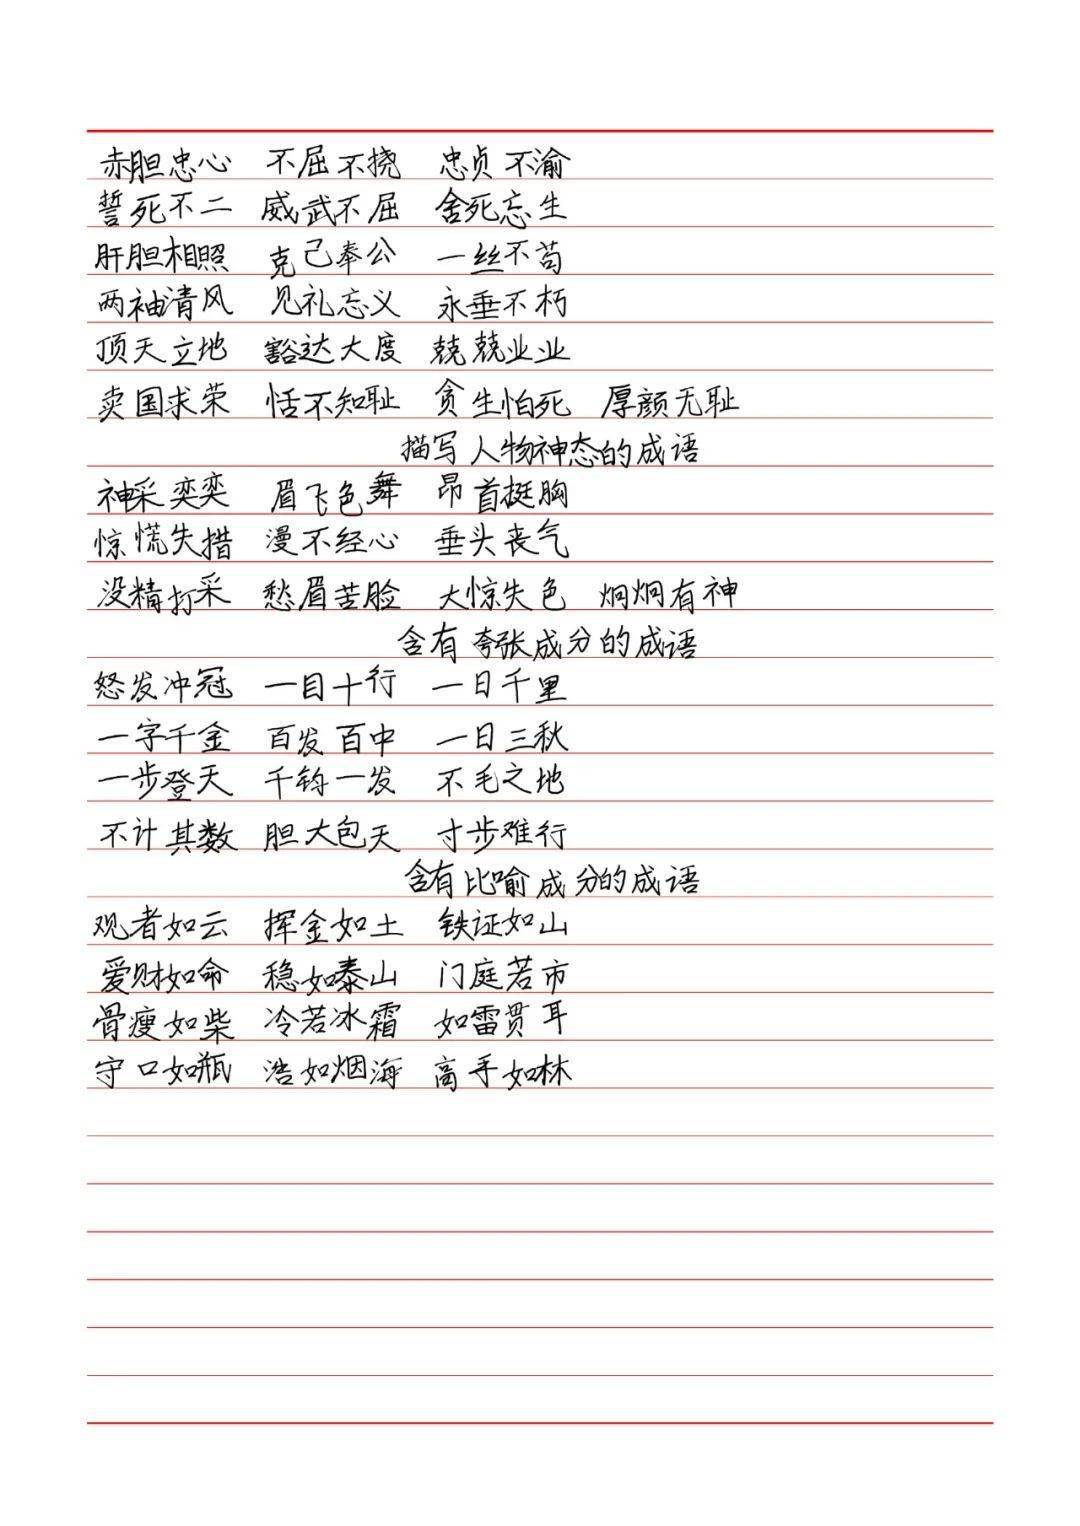 赤胆忠心 不屈不挠 忠贞不渝
誓死不二 威武不屈 舍死忘生
肝胆相照 克己奉公 一丝不苟
两袖清风 见礼忘义 永垂不朽
顶天立地 豁达大度 兢兢业业
卖国求荣 恬不知耻 贪生怕死 厚颜无耻
描写人物神态的成语
神采奕奕 眉飞色舞 昂首挺胸
惊慌失措 漫不经心 垂头丧气
没精打采 愁眉苦脸 大惊失色 炯炯有神
含有夸张成分的成语
怒发冲冠 一目十行 一日千里
一字千金 百发百中 一日三秋
一步登天 千钧一发 不毛之地
不计其数 胆大包天 寸步难行
含有比喻成分的成语
观者如云 挥金如土 铁证如山
爱财如命 稳如泰山 门庭若市
骨瘦如柴 冷若冰霜 如雷贯耳
守口如瓶 浩如烟海 高手如林